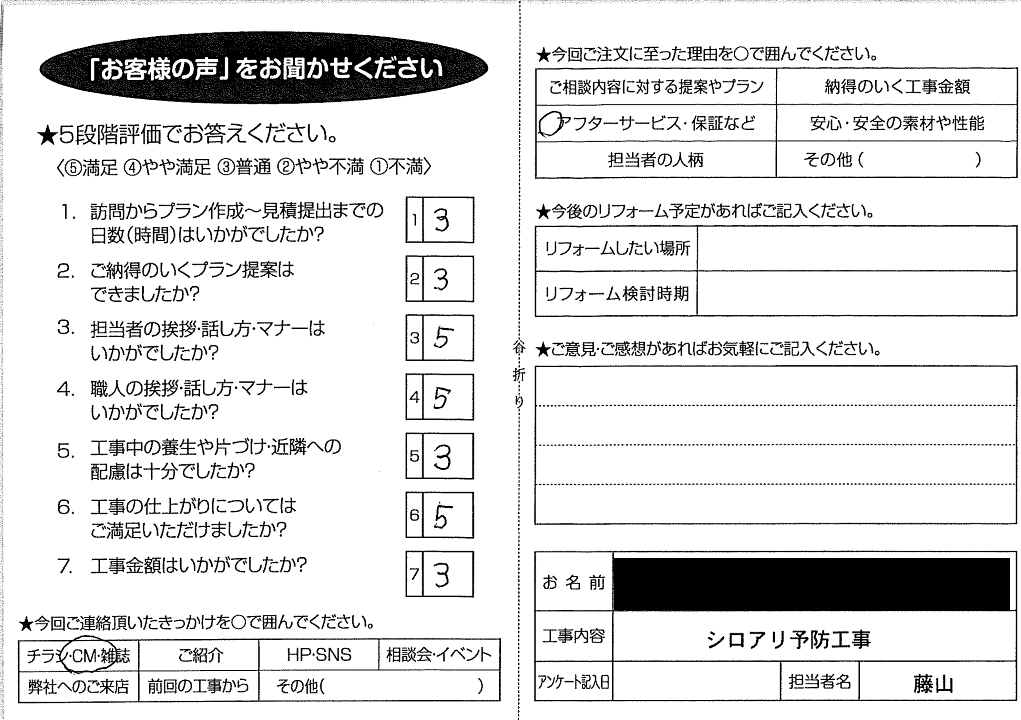 「お客様の声」をお聞かせください
★5段階評価でお答えください。
〈⑤満足 ④やや満足 ③普通 ②やや不満 ①不満〉
1. 訪問からプラン作成～見積提出までの
日数(時間)はいかがでしたか?
1 3
2. ご納得のいくプラン提案は
できましたか?
2 3
3. 担当者の挨拶・話し方・マナーは
いかがでしたか?
3 5
4. 職人の挨拶・話し方・マナーは
いかがでしたか?
4 5
5. 工事中の養生や片づけ・近隣への
配慮は十分でしたか?
5 3
6. 工事の仕上がりについては
ご満足いただけましたか?
6 5
7. 工事金額はいかがでしたか?
7 3
★今回ご連絡頂いたきっかけを○で囲んでください。
チラシ・CM・雑誌 ご紹介 HP・SNS 相談会・イベント
弊社へのご来店 前回の工事から その他( )
谷折り
★今回ご注文に至った理由を○で囲んでください。
ご相談内容に対する提案やプラン 納得のいく工事金額
アフターサービス・保証など 安心・安全の素材や性能
担当者の人柄 その他( )
★今後のリフォーム予定があればご記入ください。
リフォームしたい場所
リフォーム検討時期
★ご意見・ご感想があればお気軽にご記入ください。
お名前
工事内容 シロアリ予防工事
アンケート記入日 担当者名 藤山